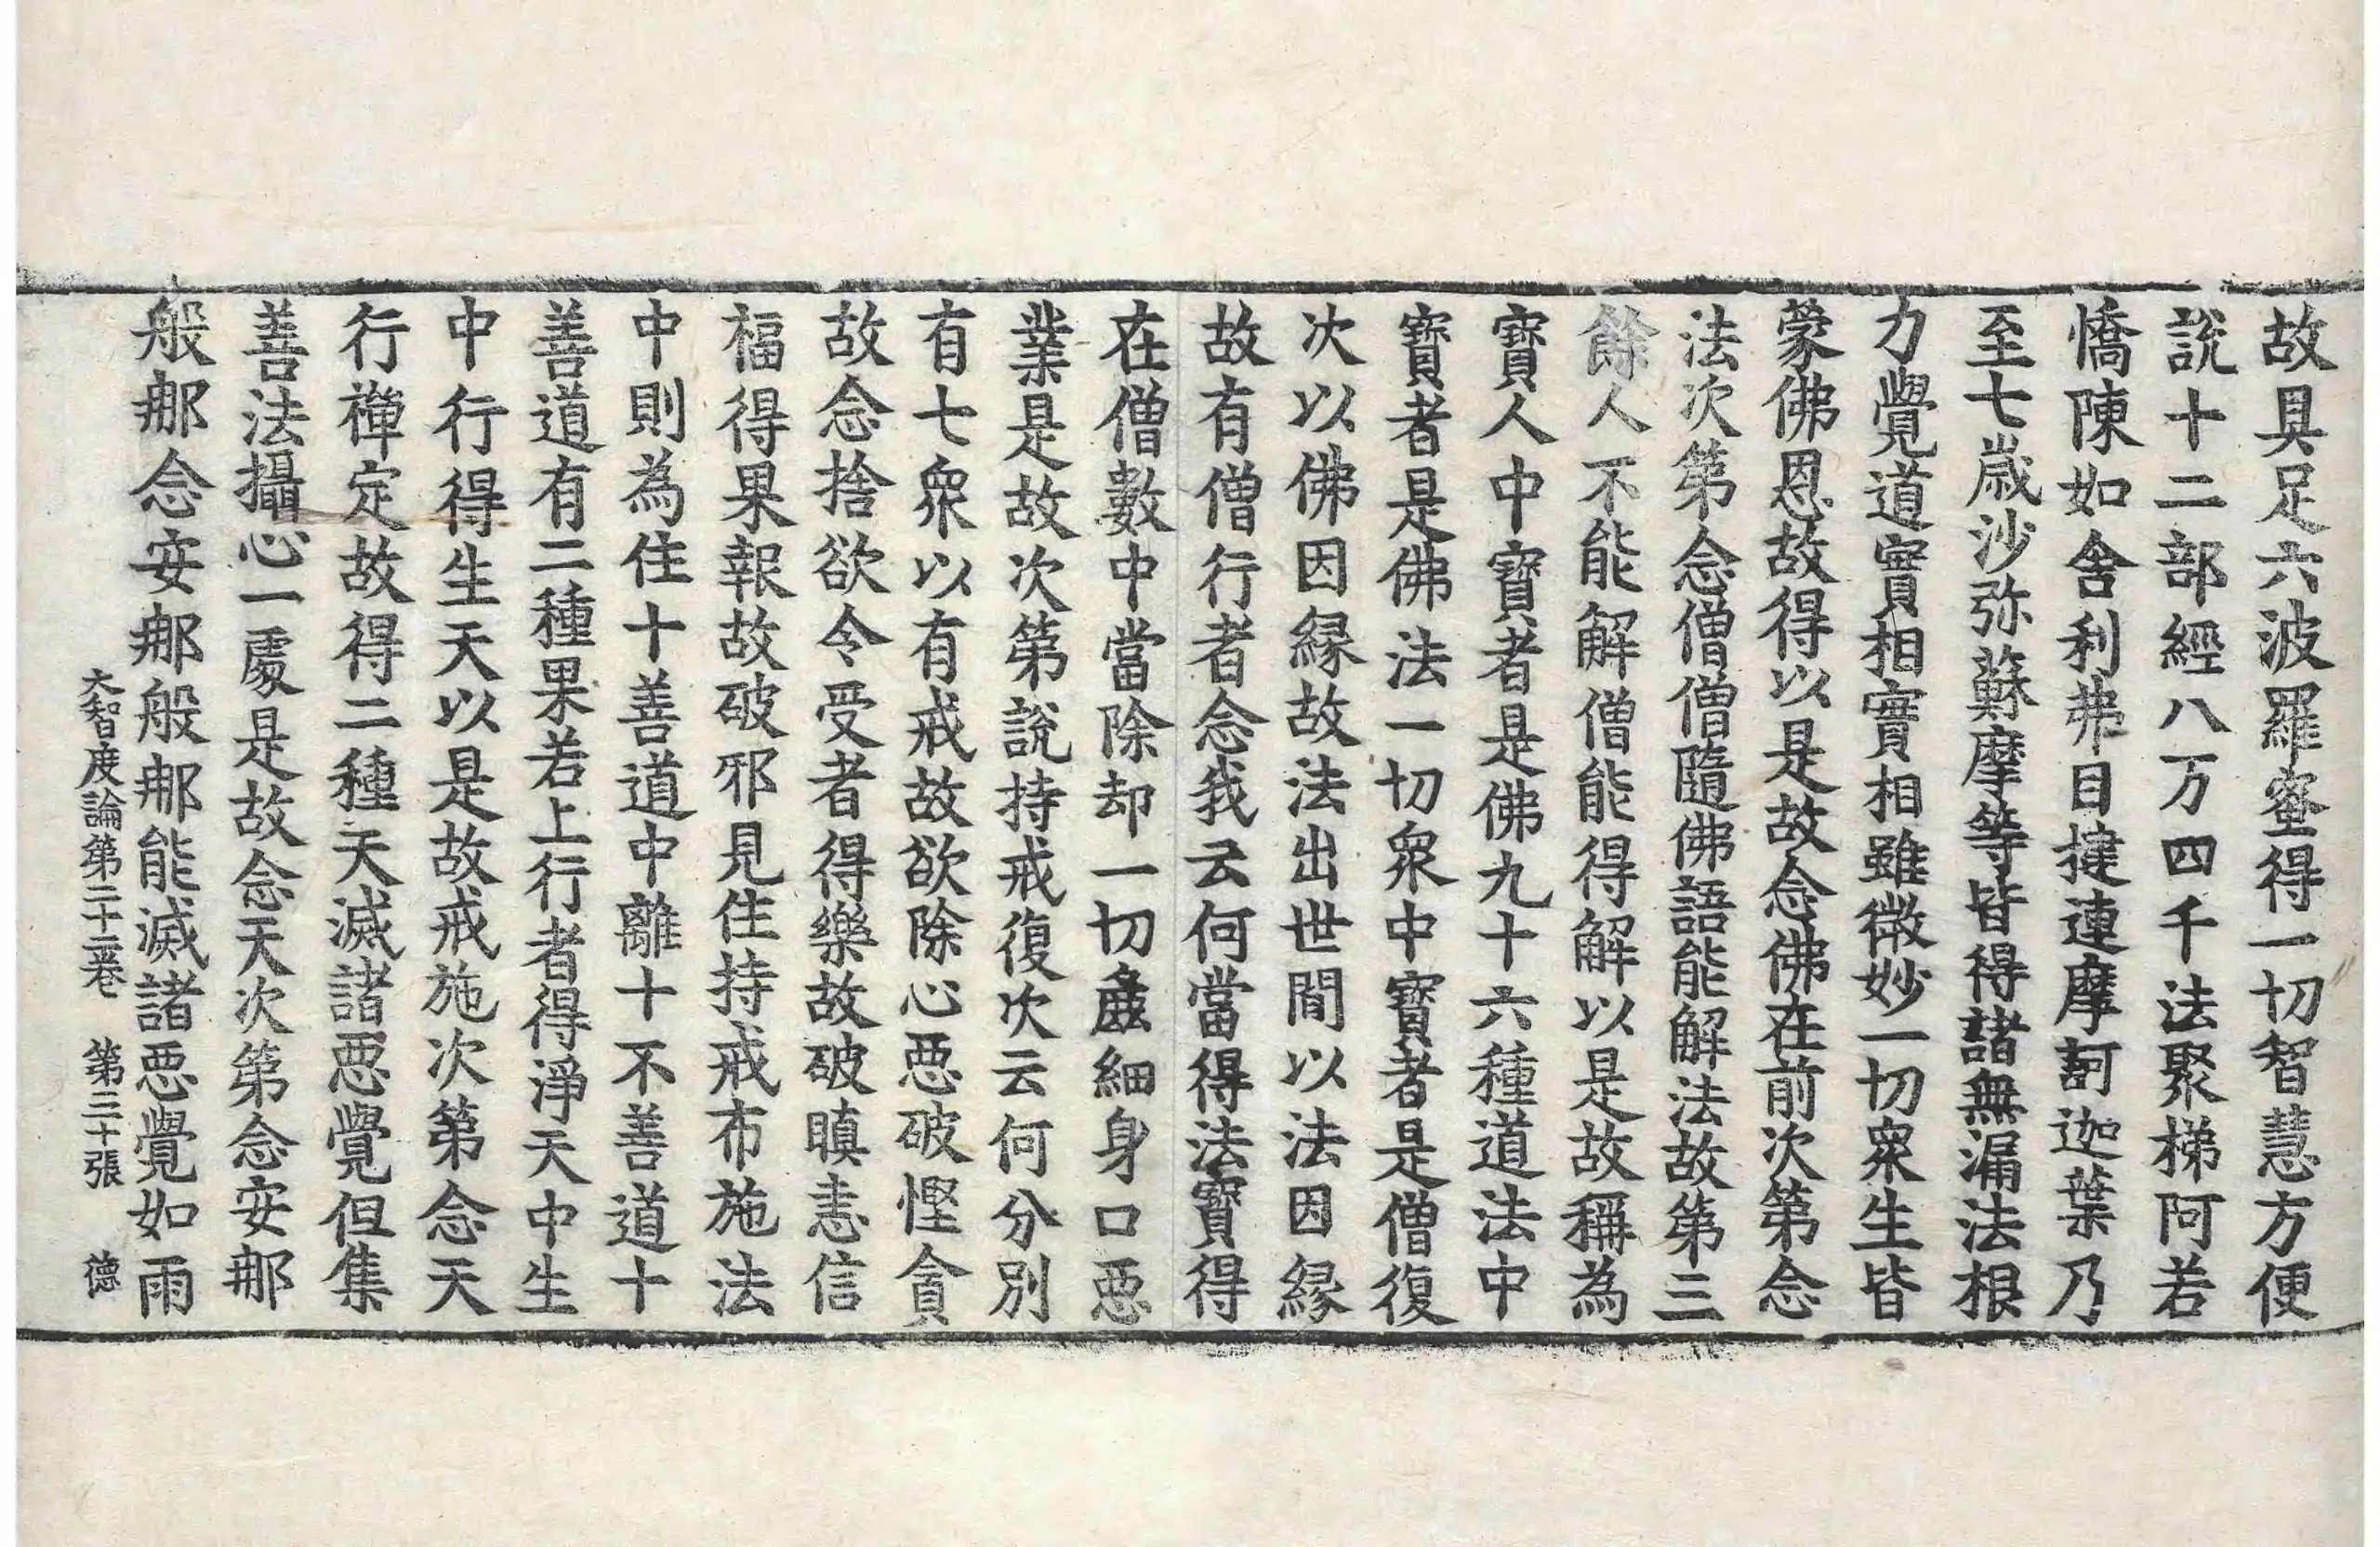 故具足六波羅蜜得一切智慧方便
說十二部經八万四千法聚梯阿若
憍陳如舍利弗目揵連摩訶迦葉乃
至七歲沙弥蘇摩等皆得諸無漏法根
力覺道實相實相雖微妙一切衆生皆
蒙佛恩故得以是故念佛在前次第念
法次第念僧僧隨佛語能解法故第三
餘人不能解僧能得解以是故稱為
寶人中寶者是佛九十六種道法中
寶者是佛法一切衆中寶者是僧復
次以佛因縁故法出世間以法因縁
故有僧行者念我云何當得法寶得
在僧數中當除却一切麁細身口惡
業是故次第說持戒復次云何分別
有七衆以有戒故欲除心惡破慳貪
故念捨欲令受者得樂故破瞋恚信
福得果報故破邪見住持戒布施法
中則為住十善道中離十不善道十
善道有二種果若上行者得淨天中生
中行得生天以是故戒施次第念天
行禪定故得二種天滅諸惡覺但集
善法攝心一處是故念天次第念安那
般那念安那般那能滅諸惡覺如雨
大智度論第二十二卷 第三十張 德